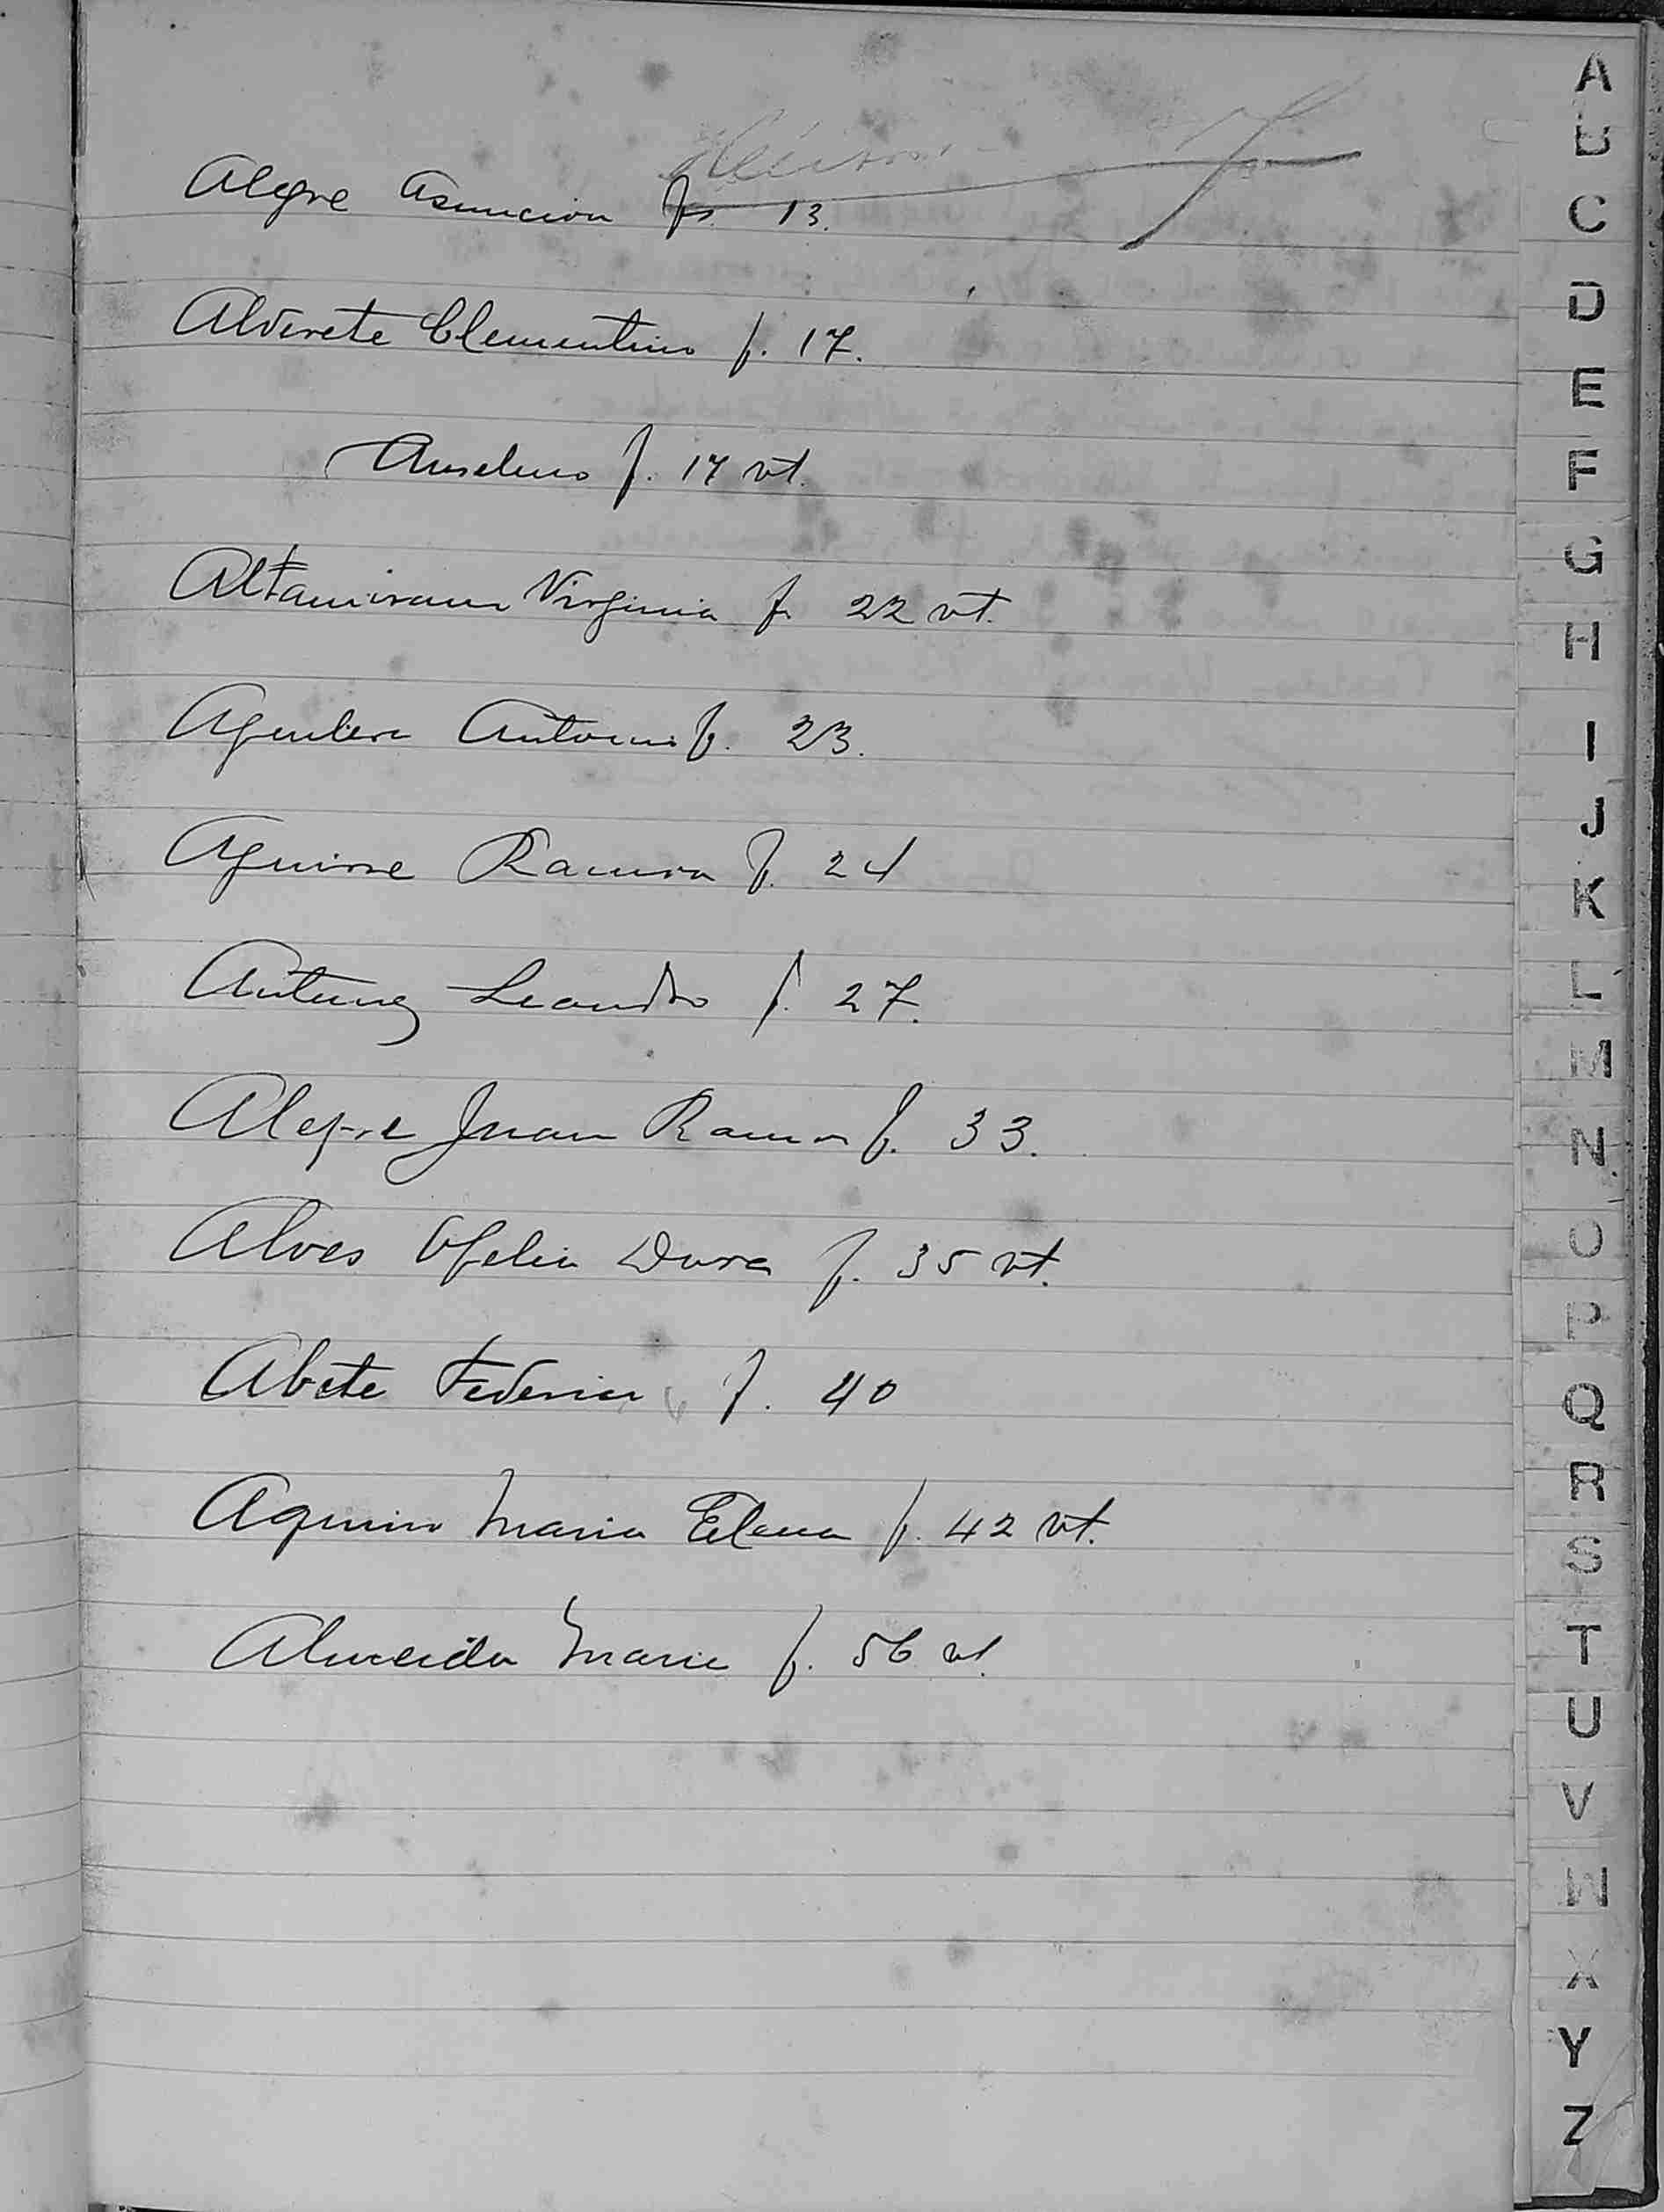 Alegre Asuncion fs. 13.
Alderete Clementino f. 17.
Anselmo f. 17 vt.
Altamirano Virginia f. 22 vt.
Aguilera Antonio f. 23.
Aguirre Ramon f. 24
Antunez Leandro f. 27.
Alegre Juan Ramon f. 33.
Alves Ofelia Dora f. 35 vt.
Abate Federico f. 40
Aquino Maria Elena f. 42 vt.
Almeida Maria f. 56 vt.
A
B
C
D
E
F
G
H
I
J
K
L
M
N
O
P
Q
R
S
T
U
V
W
X
Y
Z